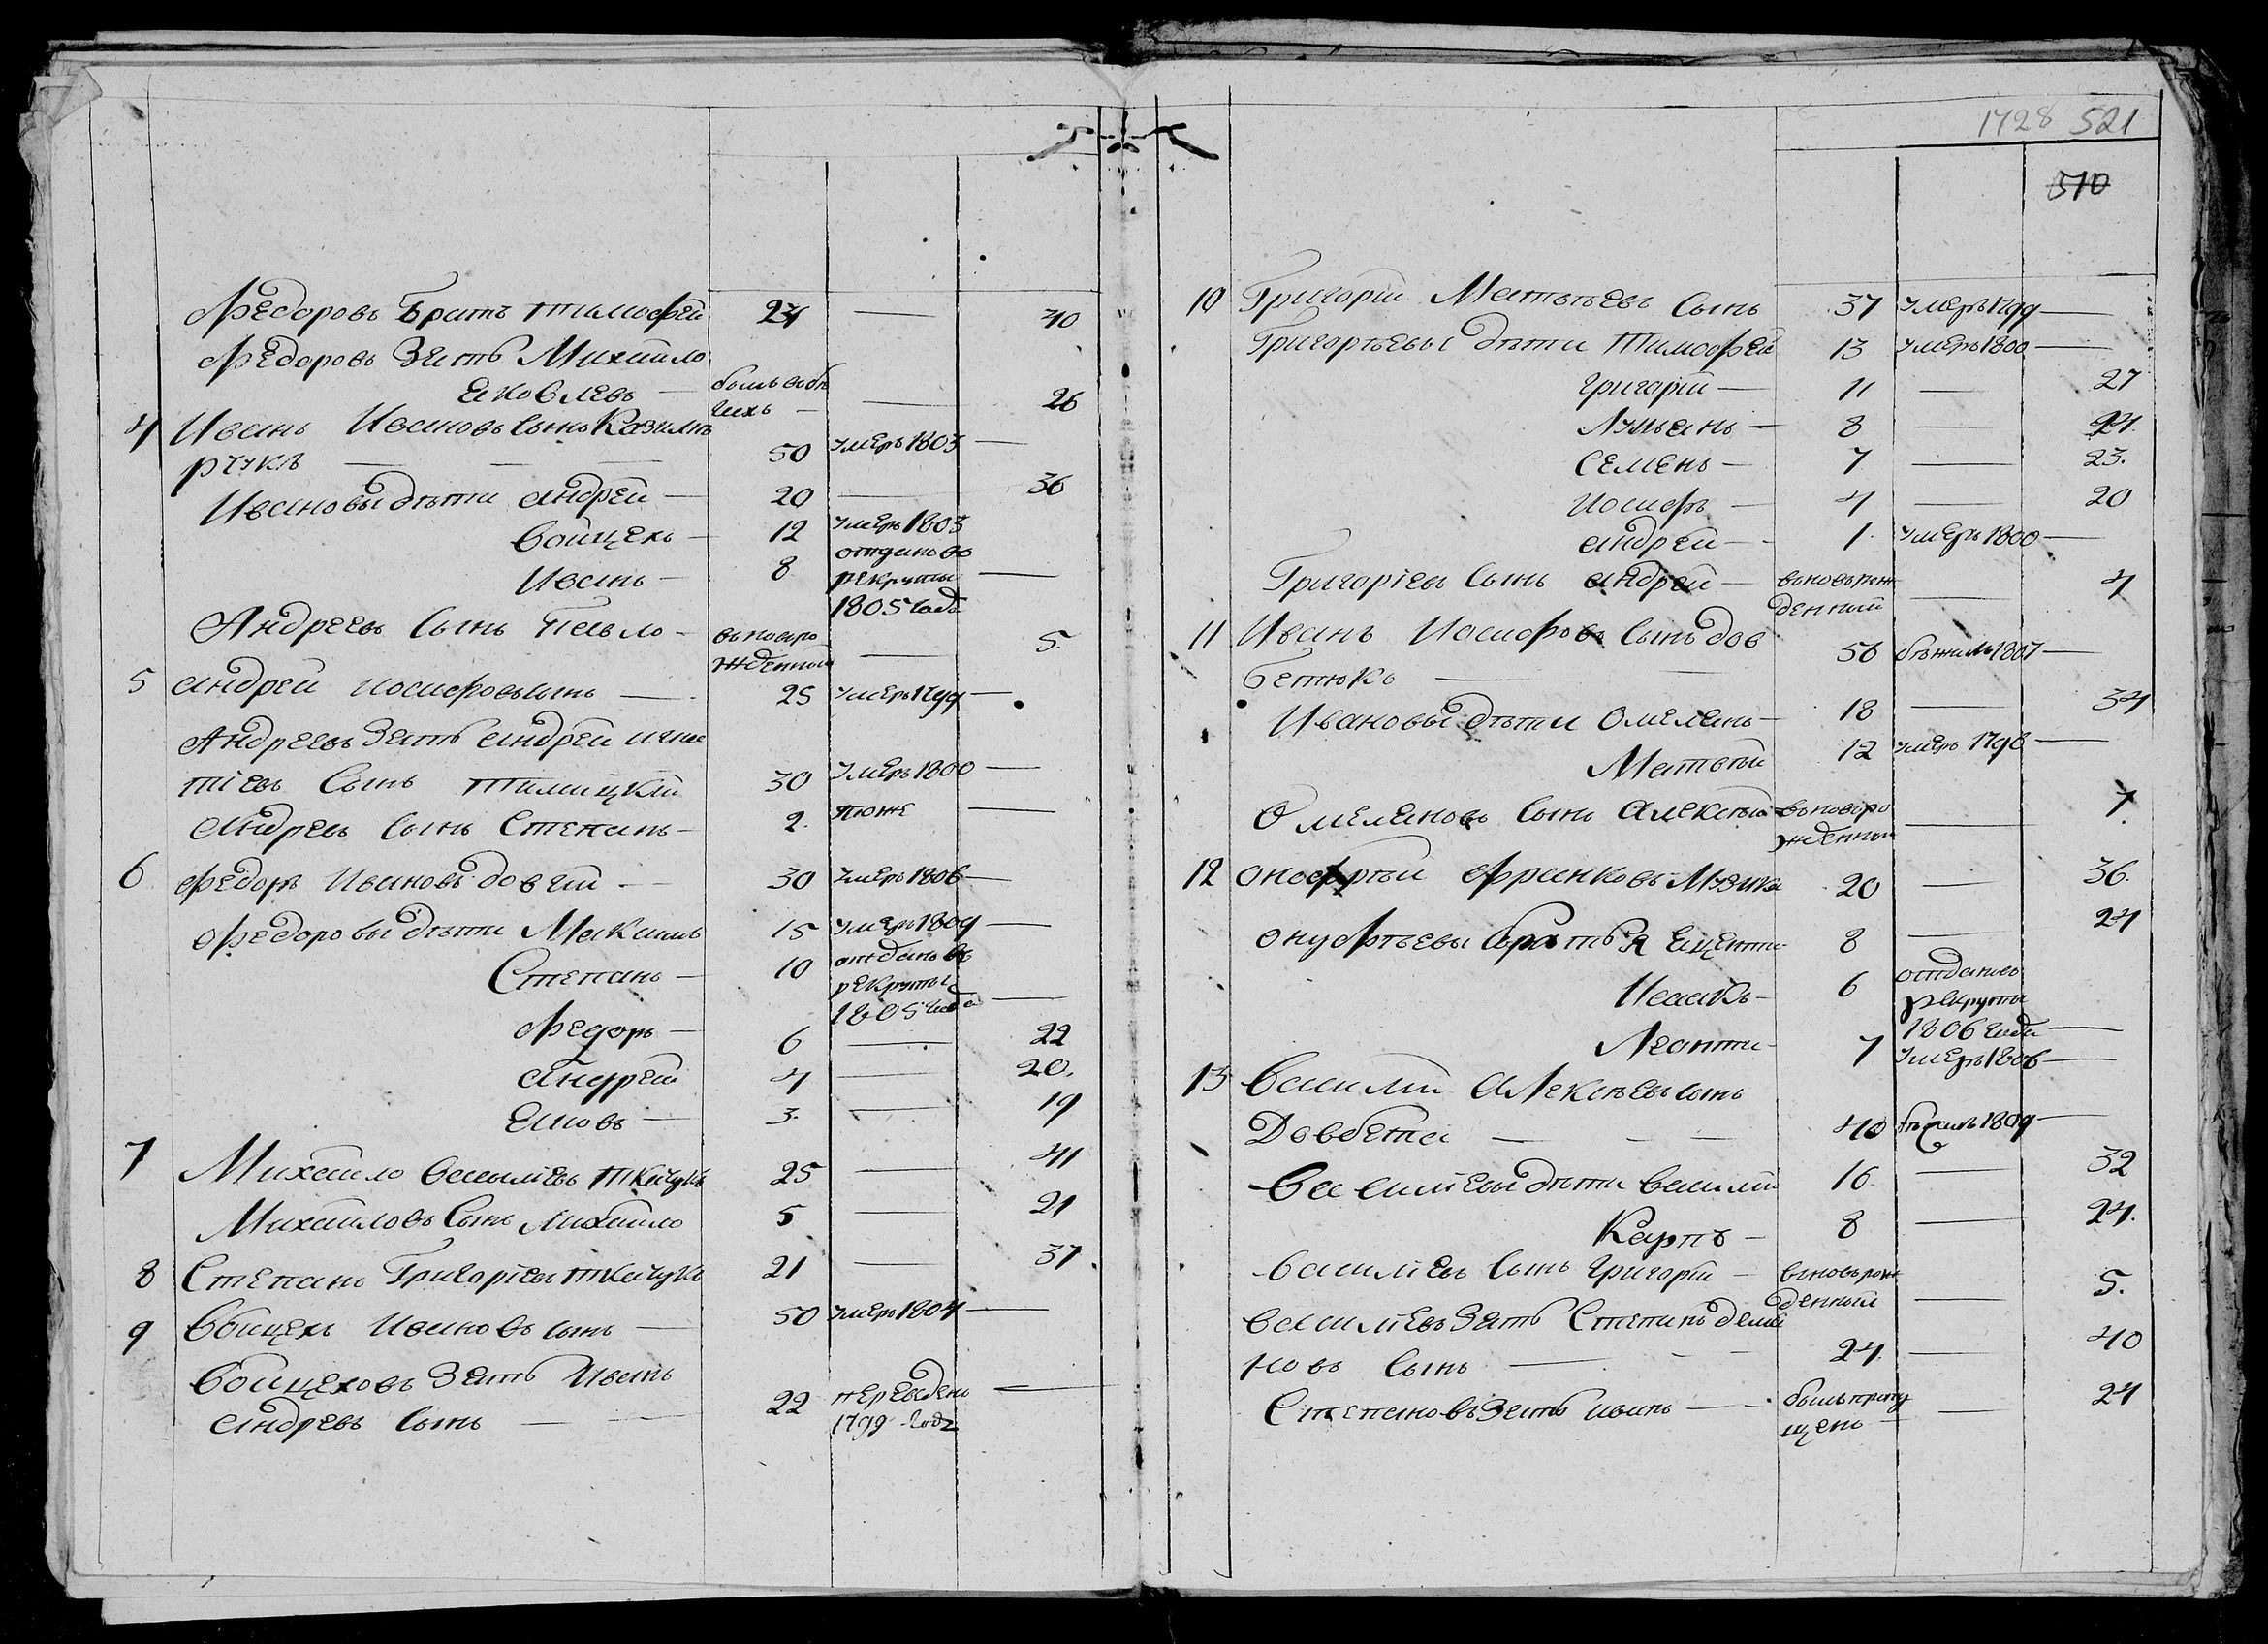 Федоровъ Братъ тимофей 24 — 40
Федоровъ Зять Михайло
Яковлевъ — былъ в бѣ
гахъ — — 26
4 Иванъ Ивановъ сынъ Казими
рчукъ — — — 50 умеръ 1803 —
Ивановы дѣти андрей — 20 — 36
войцехъ — 12 умеръ 1803
Иванъ — 8 отданъ во
рекруты —
1805 года
Андреевъ сынъ Павло — вьноворо
жденный — 5.
5 андрей иосифовъ сынъ — 25 умеръ 1799 —
Андреевъ Зять андрей игна
тіевъ сынъ 30 умеръ 1800 —
андреевъ сынъ Степанъ — 2. тоже —
6 Федоръ Ивановъ 30 умеръ 1806 —
Федоровы дѣти Максимъ 15 умеръ 1809 —
Степанъ — 10 отданъ въ
рекруты
1805 года —
Федоръ — 6 — 22
андрей 4 — 20.
Яковъ — 3. — 19
7 Михайло васильевъ ткачукъ 25 — 41
Михайловъ сынъ михайло 5 — 21
8 Степанъ Григорьевъ ткачукъ 21 — 37.
9 войцехъ ивановъ сынъ — 50 умеръ 1804 —
войцеховъ Зять Иванъ
андреевъ сынъ — — 22 переведенъ —
1799 года
1728 521
510
10 Григорій Матвѣевъ сынъ 37 умеръ 1799 —
Григорьевы дѣти тимофей 13 умеръ 1800 —
григорій — 11 — 27
Лукьянъ — 8 — 24.
семенъ — 7 — 23.
иосифъ — 4 — 20
андрей — 1. умеръ 1800 —
Григоріевъ сынъ андрей — вьновьрож
денный — 4
11 Иванъ Иосифовъ сынъ дов
бетюкъ — — 56 бѣжалъ 1807 —
Ивановы дѣти омелянъ — 18 — 34
Матвѣй 12 умеръ 1796 —
Омеляновъ сынъ алексѣй вьноворо
жденный — 7.
12 онофрѣй Франковъ Музика 20 — 36.
онуфрѣевы братья 8 — 24
Исаакъ — 6 отданъ въ
рекруты
1806 года —
Леонти — 7 умеръ 1806 —
13 василій алексѣевъ сынъ
Довбета — — — 40 бѣжалъ 1809 —
василіевы дѣти василій 16 — 32
Карпъ — 8 — 24.
василіевъ сынъ григорій — вьновьрож
денный — 5.
василіевъ Зять Степанъ демя
новъ сынъ — — 24. — 40
Степановъ Зять иванъ — былъ пропу
щенъ — — 24